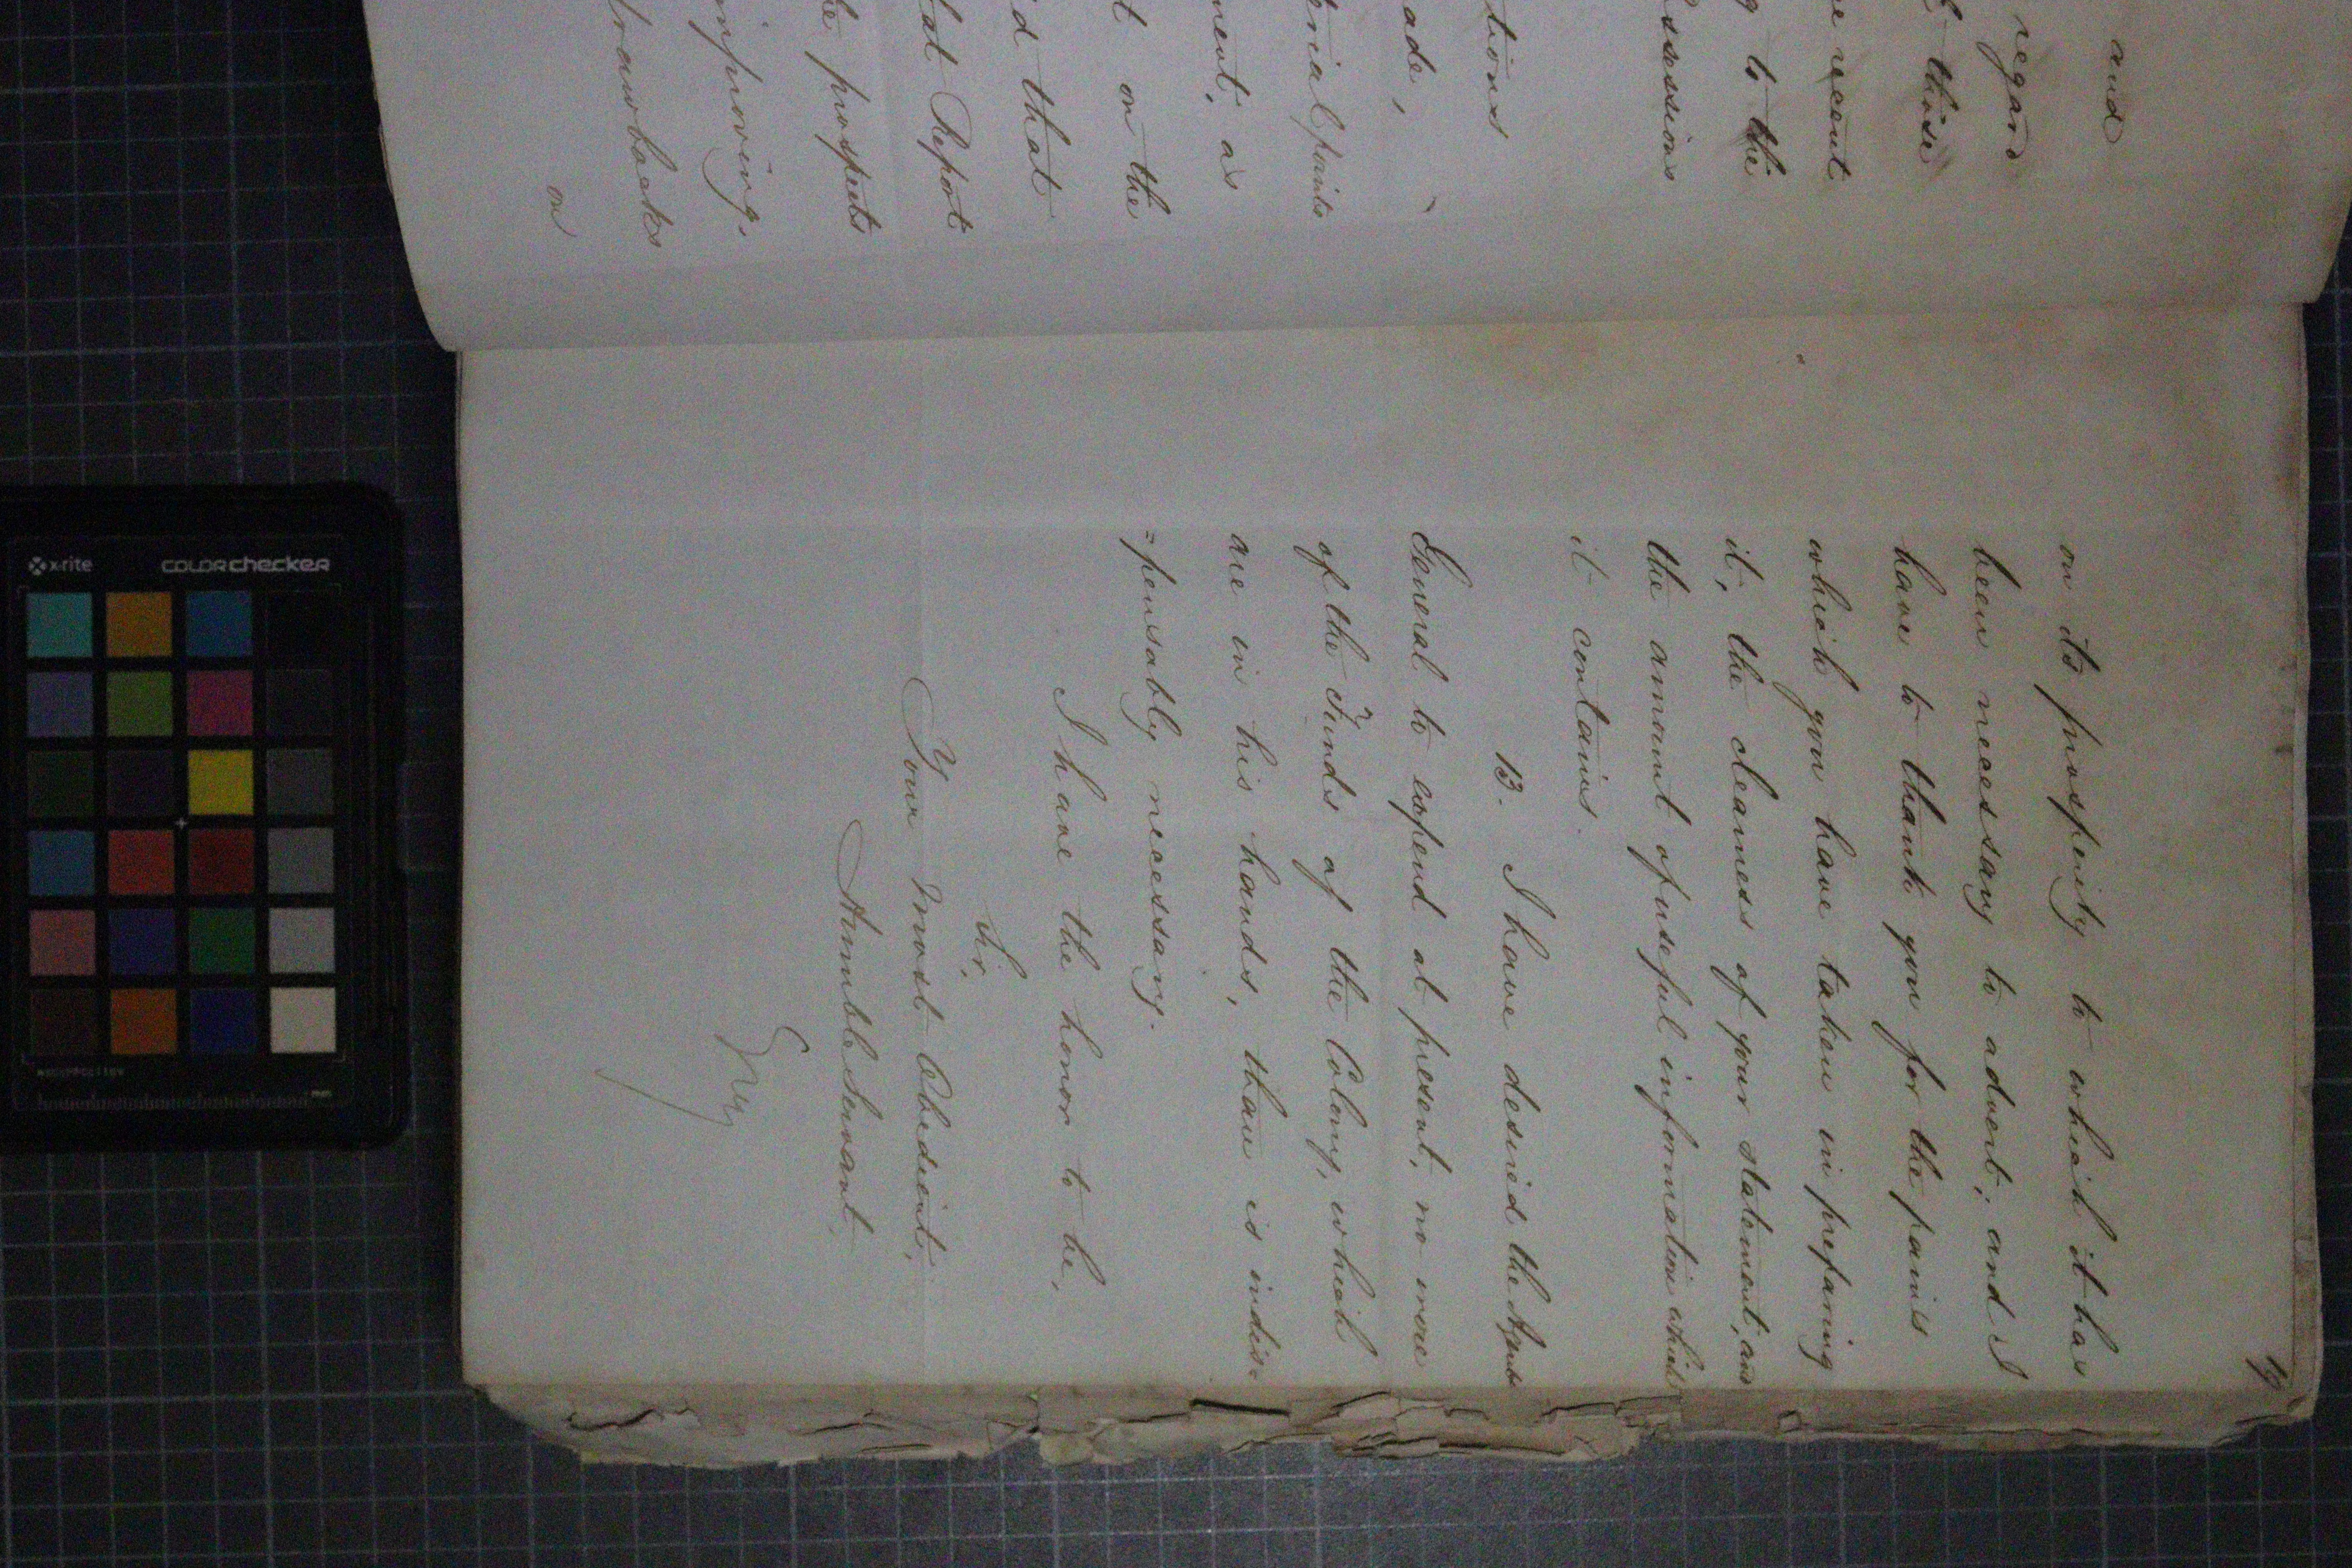 and
regard
these
recent
to the
ssessions
tions
ade,
erial points
ment, as
t on the
id that
at Report
he prospects
mproving,
drawbacks
on
19
on its prosperity to which it has
been necessary to advert; and I
have to thank you for the pains
which you have taken in preparing
it, the clearness of your statement, and
the amount of useful information which
it contains.
13. I have desired the Agent
General to expend at present, no more
of the Funds of the Colony, which
are in his hands, than is indis=
=pensably necessary.
I have the honor to be,
Sir,
Your most Obedient,
Humble Servant
Grey
x-rite
colorchecker
mm